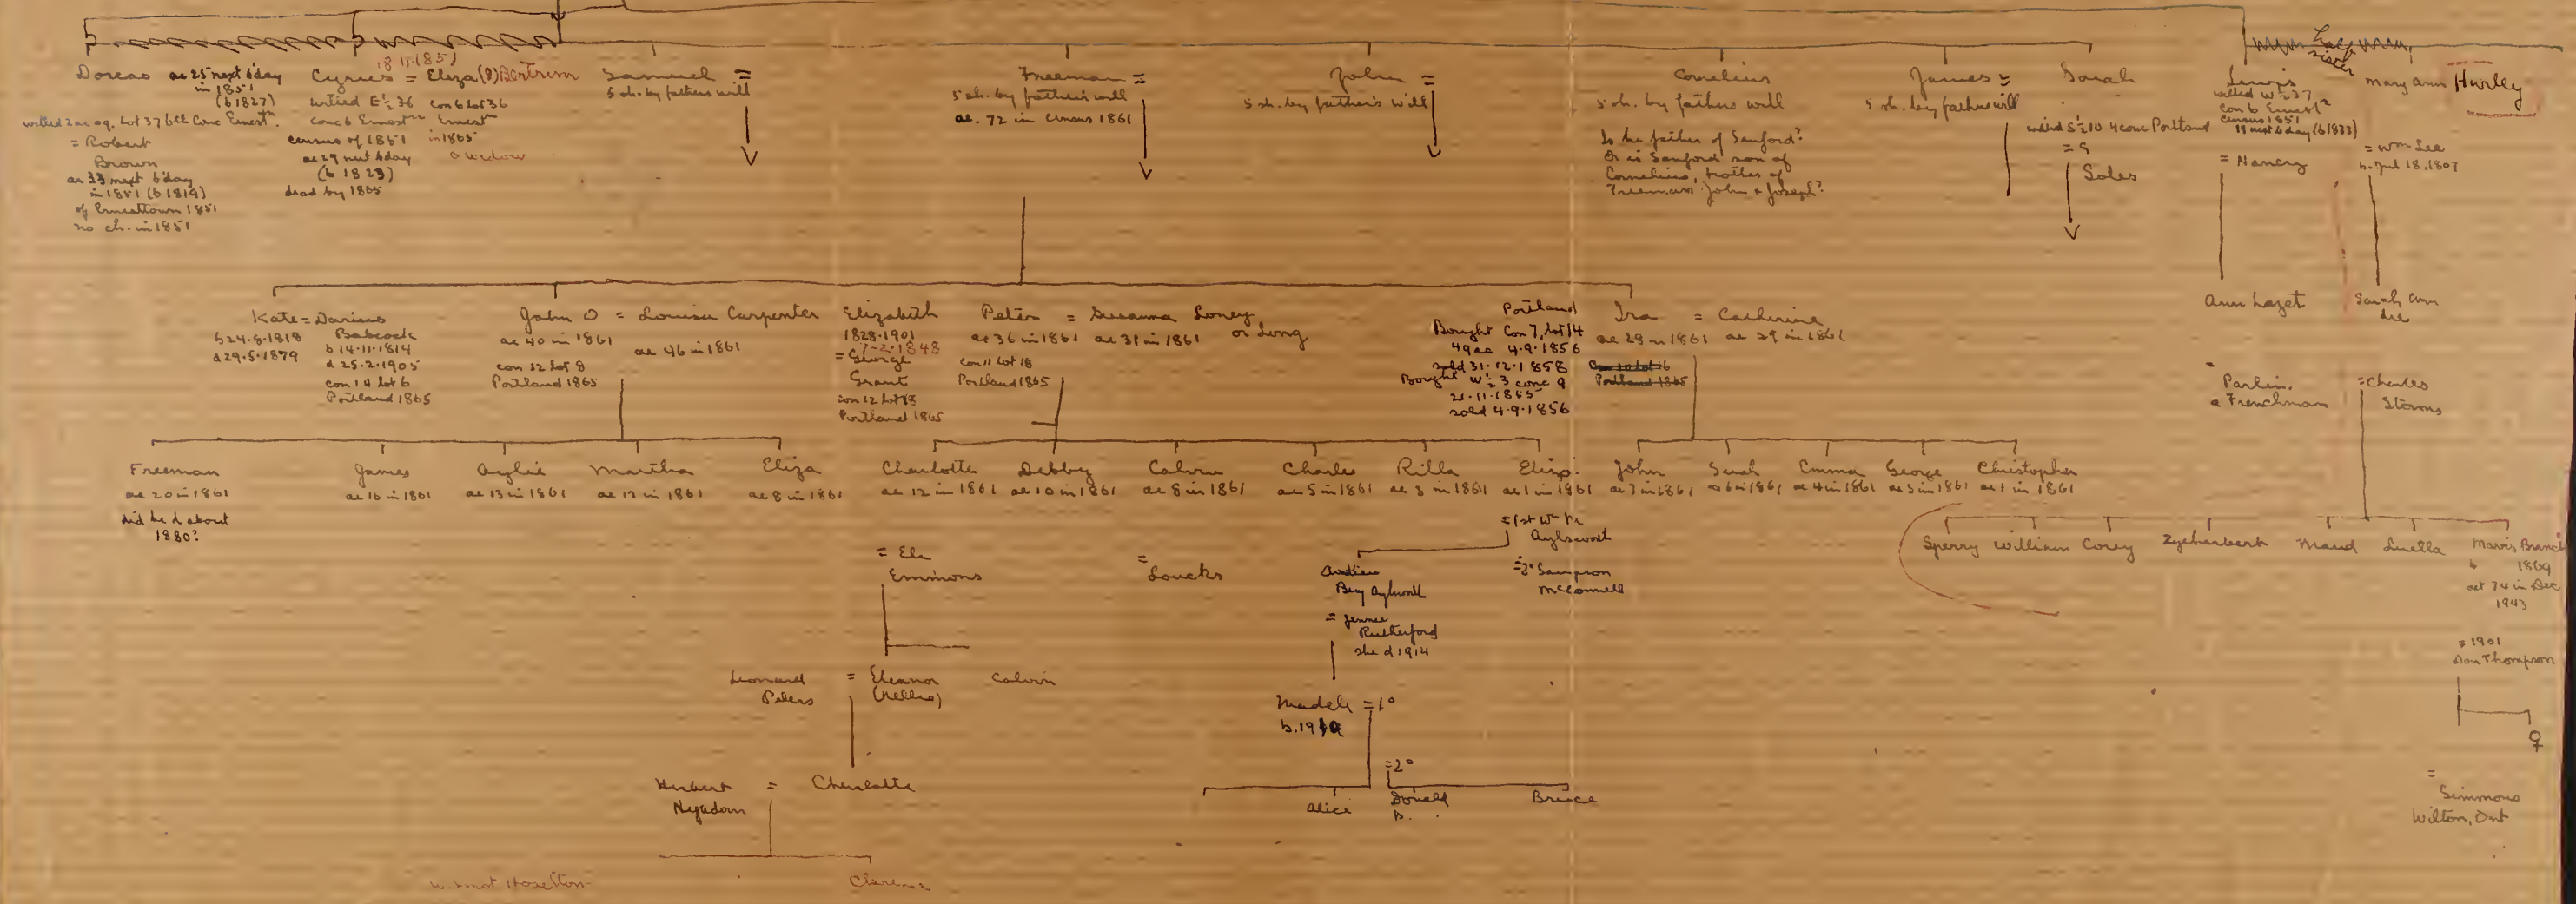 Dorcas ae 25 next b'day
in 1851
(b 1827)
willed 2 ac
= Robert
Brown
ae 33 next b'day
in 1851 (b 1819)
of Ernesttown 1851
no ch. in 1851
18 11 1851
Cyrus = Eliza (?) Bertrim
willed E½ 36 con 6 lot 36
conc 6 Ernest
census of 1851 in 1865
ae 29 next b'day a widow
(b 1823)
dead by 1865
Samuel =
5 sh. by fathers will
Freeman =
5 sh. by father's will
ae. 72 in census 1861
John =
5 sh. by father's will
Cornelius
5 sh. by fathers will
Is he father of Sanford?
Or is Sanford son of
Cornelius, brother of
Freeman John & Joseph?
James =
5 sh. by fathers will
Sarah
willed S½ 10 4 conc Portland
=
Soles
Half
sister
Lewis
willed W½ 37
con 6 Ernest
census 1851
18 next b'day (b 1833)
= Nancy
Mary Ann Hurley
= Wm Lee
b. Jul 18, 1807
Kate = Darius
Babcock
b 24.8.1818
d 29.5.1879
b 14.11.1814
d 25.2.1905
con 14 lot 6
Portland 1865
John O = Louisa Carpenter
ae 40 in 1861
ae 46 in 1861
con 12 lot 8
Portland 1865
Elizabeth
1828-1901
7-2-1848
= George
Grant
con 12 lot
Portland 1865
Peter = Susanna Loney
or Long
ae 36 in 1861 ae 31 in 1861
con 11 lot 18
Portland 1865
Portland
Bought Con 7, lot 14
49 ac 4.9.1856
sold 31.12.1858
Bought W½ 3 conc 9
21.11.1855
sold 4.9.1856
Ira = Catherine
ae 28 in 1861 ae 29 in 1861
Con 10 lot 16
Portland 1865
Ann Lazet
Sarah Ann
Lee
=
Parlin.
a Frenchman
= Charles
Storms
Freeman
ae 20 in 1861
did he d about
1880?
James
ae 16 in 1861
Aylie
ae 13 in 1861
Martha
ae 12 in 1861
Eliza
ae 8 in 1861
Charlotte
ae 12 in 1861
Debby
ae 10 in 1861
Calvin
ae 8 in 1861
Charles
ae 5 in 1861
Rilla
ae 3 in 1861
Eliza
ae 1 in 1861
John
ae 7 in 1861
Sarah
ae 6 in 1861
Emma
ae 4 in 1861
George
ae 3 in 1861
Christopher
ae 1 in 1861
Sperry William Corey Zycherbert Maud Luella Mavis Branch
b 1869
aet 74 in Dec
1943
= 1901
Dan Thompson
♀
=
Simmons
Wilton, Ont
= Ele
Emmons
=
Loucks
= 1st
Aylsworth
= 2° Sampson
McConnell
Bey Aylsworth
= Jennie
Rutherford
she d 1914
Leonard = Eleanor Calvin
Peters (Nellie)
= 1°
= 2°
Alice Donald Bruce
B.
Herbert = Charlotte